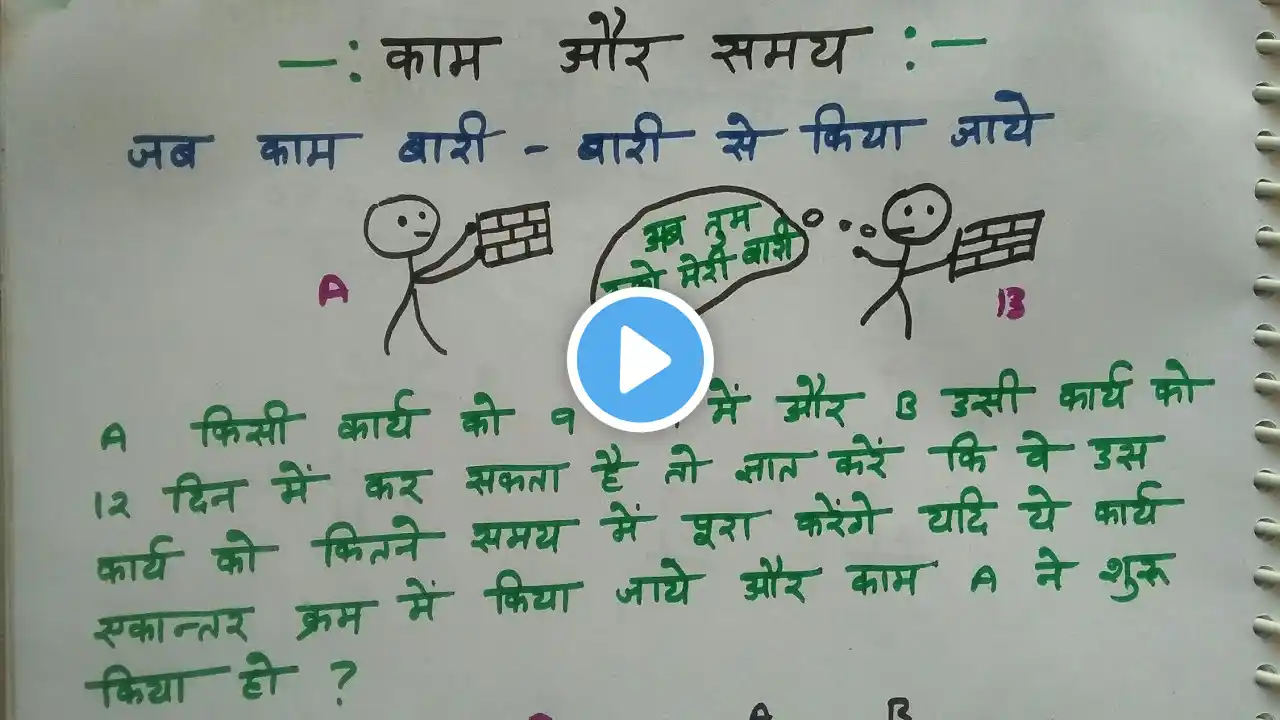 —: काम और समय :—
जब काम बारी - बारी से किया जाये
अब तुम
मेरी बारी
A
B
A किसी कार्य को 9 में और B उसी कार्य को
12 दिन में कर सकता है तो ज्ञात करें कि वे उस
कार्य को कितने समय में पूरा करेंगे यदि ये कार्य
एकान्तर क्रम में किया जाये और काम A ने शुरू
किया हो ?
A B